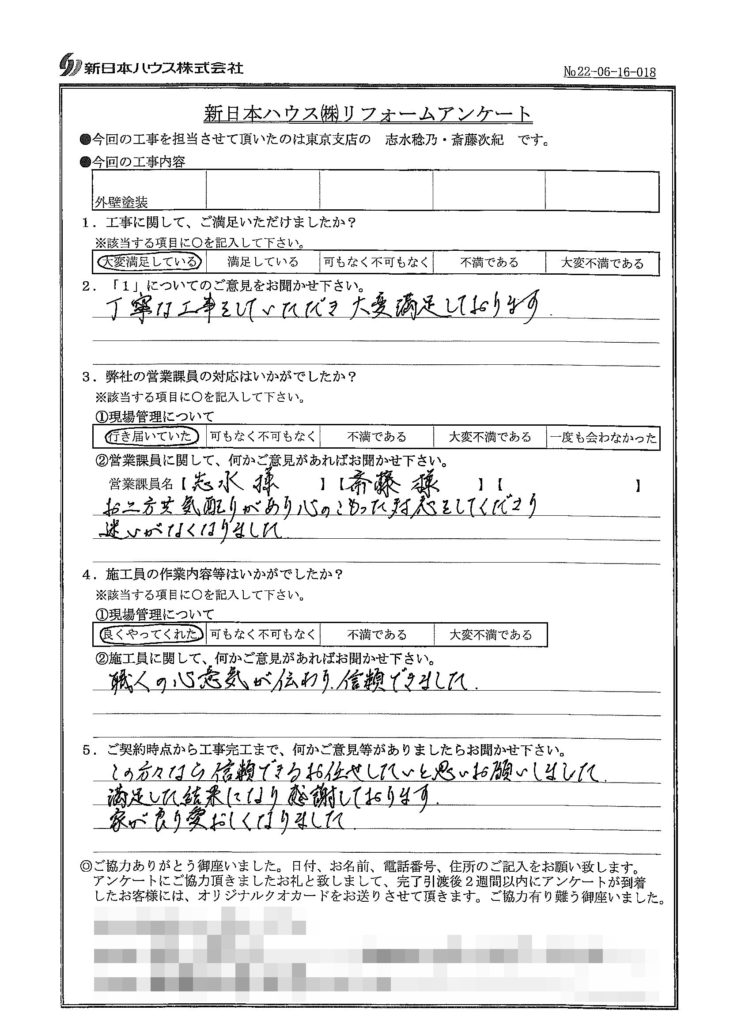 新日本ハウス株式会社
№22-06-16-018
新日本ハウス㈱リフォームアンケート
●今回の工事を担当させて頂いたのは東京支店の 志水稔乃・斎藤次紀 です。
●今回の工事内容
外壁塗装
1．工事に関して、ご満足いただけましたか？
※該当する項目に○を記入して下さい。
大変満足している 満足している 可もなく不可もなく 不満である 大変不満である
2．「1」についてのご意見をお聞かせ下さい。
丁寧な工事をしていただき 大変満足しております．
3．弊社の営業課員の対応はいかがでしたか？
※該当する項目に○を記入して下さい。
①現場管理について
行き届いていた 可もなく不可もなく 不満である 大変不満である 一度も会わなかった
②営業課員に関して、何かご意見があればお聞かせ下さい。
営業課員名【志水 様 】【斎藤 様 】【 】
お二方共気配りがあり心のこもった対応をしてくださり
迷いがなくなりました
4．施工員の作業内容等はいかがでしたか？
※該当する項目に○を記入して下さい。
①現場管理について
良くやってくれた 可もなく不可もなく 不満である 大変不満である
②施工員に関して、何かご意見があればお聞かせ下さい。
職人の心意気が伝わり．信頼できました．
5．ご契約時点から工事完工まで、何かご意見等がありましたらお聞かせ下さい。
この方々なら信頼できるお任せしたいと思いお願いしました．
満足した結果になり感謝しております．
家が良り愛おしくなりました．
◎ご協力ありがとう御座いました。日付、お名前、電話番号、住所のご記入をお願い致します。
アンケートにご協力頂きましたお礼と致しまして、完了引渡後2週間以内にアンケートが到着
したお客様には、オリジナルクオカードをお送りさせて頂きます。ご協力有り難う御座いました。